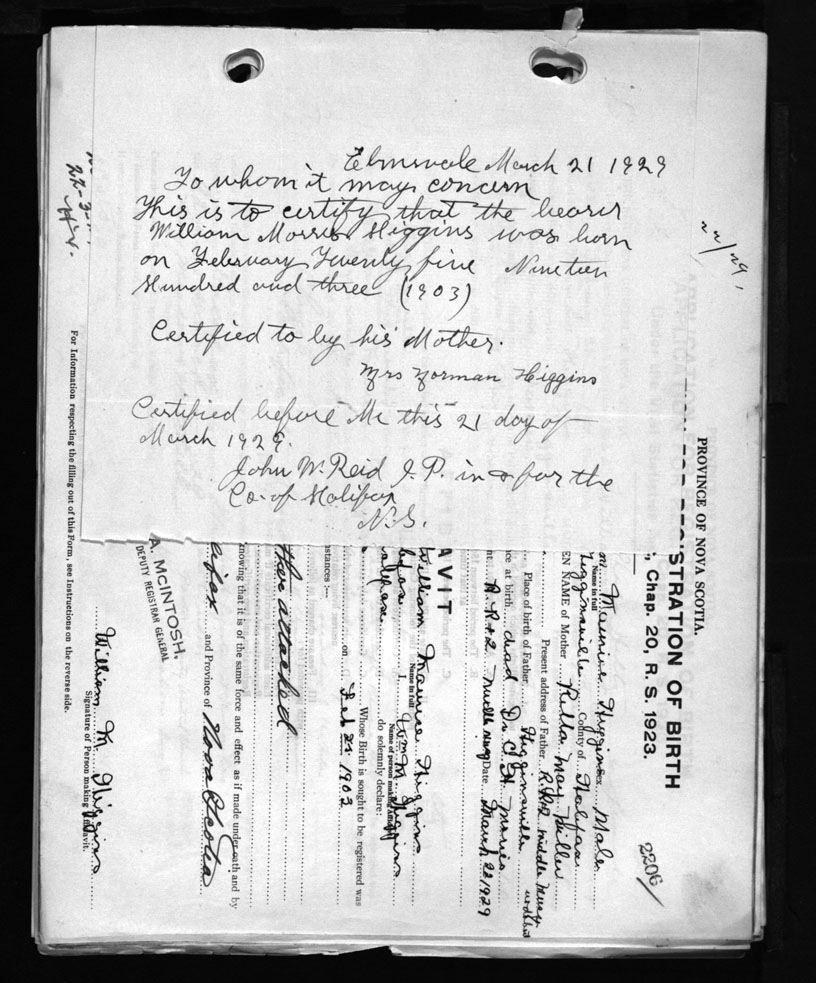 Elmsvale March 21 1929
To whom it may concern
This is to certify that the bearer
William Morris Higgins was born
on February Twenty five Nineteen
Hundred and three (1903)
Certified to by his Mother.
Mrs Norman Higgins
Certified before Me this 21 day of
March 1929.
John W. Reid J.P. in & for the
Co. of Halifax
N.S.
22/29
PROVINCE OF NOVA SCOTIA.
REGISTRATION OF BIRTH
, Chap. 20, R. S. 1923.
2206
Maurice Higgins Male
Name in full
Higginsville County of Halifax
EN NAME of Mother Rella May Miller
Present address of Father R.R.2 Middle Musq
Place of birth of Father Higginsville
ce at birth dead Dr. C. H. Morris
R.R.2 Middle Musq Date March 22 1929
AVIT
William Maurice Higgins
Name in full
I Wm M. Higgins
Name of person making Affidavit
do solemnly declare:
Whose Birth is sought to be registered was
on Feb 25 1903
stances :—
ther attached
nowing that it is of the same force and effect as if made under oath and by
lifax and Province of Nova Scotia
A. McINTOSH.
DEPUTY REGISTRAR GENERAL
William M. Higgins
Signature of Person making Affidavit.
For Information respecting the filling out of this Form, see Instructions on the reverse side.
22-3-